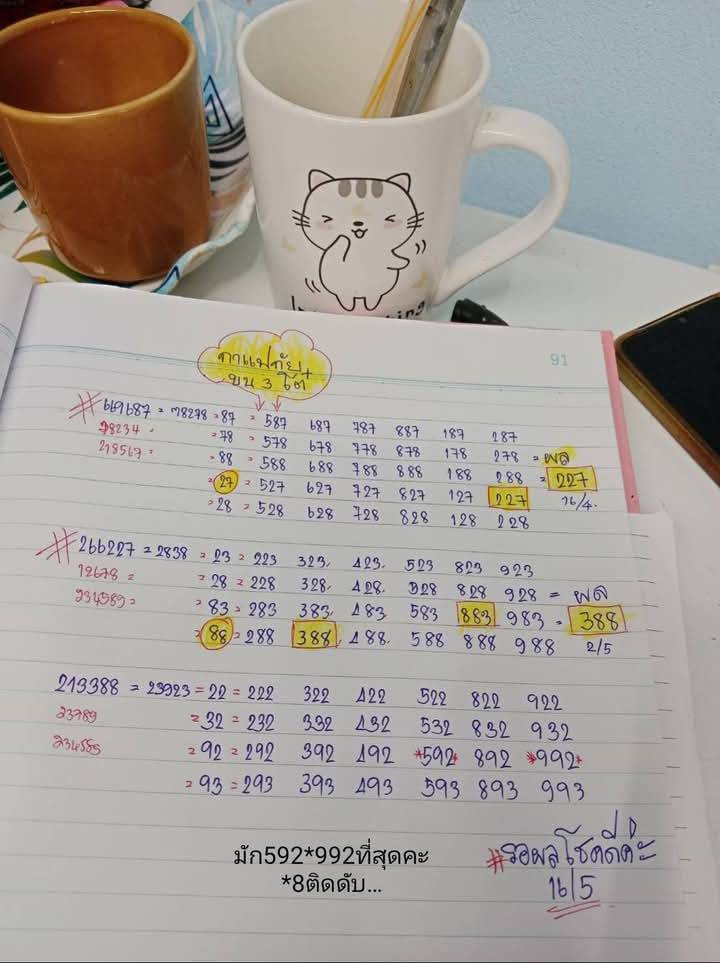 91
กาแฟภัย+
บน 3 โต
#669687 = 78278 = 87 = 587 687 787 887 187 287
78234 = 78 = 578 678 778 878 178 278 = ผล
218567 = 88 = 588 688 788 888 188 288 = 227
= 27 = 527 627 727 827 127 227 16/4
= 28 = 528 628 728 828 128 228
#266227 = 2838 = 23 = 223 323 423 523 823 923
12678 = = 28 = 228 328 428 528 828 928 = ผล
234589 = = 83 = 283 383 483 583 883 983 = 388
= 88 = 288 388 488 588 888 988 2/5
213388 = 23923 = 22 = 222 322 422 522 822 922
23789 = 32 = 232 332 432 532 832 932
= 92 = 292 392 492 *592* 892 *992*
= 93 = 293 393 493 593 893 993
มัก592*992ที่สุดคะ
*8ติดดับ...
#รอผลโชคดีค่ะ
16/5